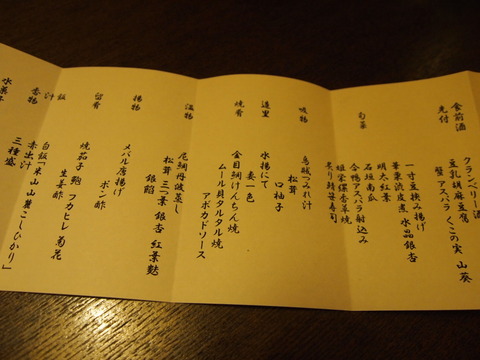 食前酒
クランベリー酒
先付
豆乳胡麻豆腐
蟹 アスパラ くこの実 山葵
旬菜
一寸豆挟み揚げ
栗東流皮煮 水晶銀杏
明太紅葉
石垣南瓜
合鴨アスパラ射込み
姫栄螺香草焼
炙り鯖笹寿司
吸物
鳥賊つみれ汁
松茸
口柚子
造里
水揚にて
妻一色
焼肴
金目鯛けんちん焼
ムール貝タルタル焼
アボカドソース
温物
尼鯛丹波蒸し
松茸 三つ葉 銀杏 紅葉麩
銀餡
揚物
メバル唐揚げ
ポン酢
留肴
焼茄子 鮑 フカヒレ 菊花
生姜酢
飯
白飯「米山山麓こしひかり」
汁
赤出汁
香物
三種盛
水菓子